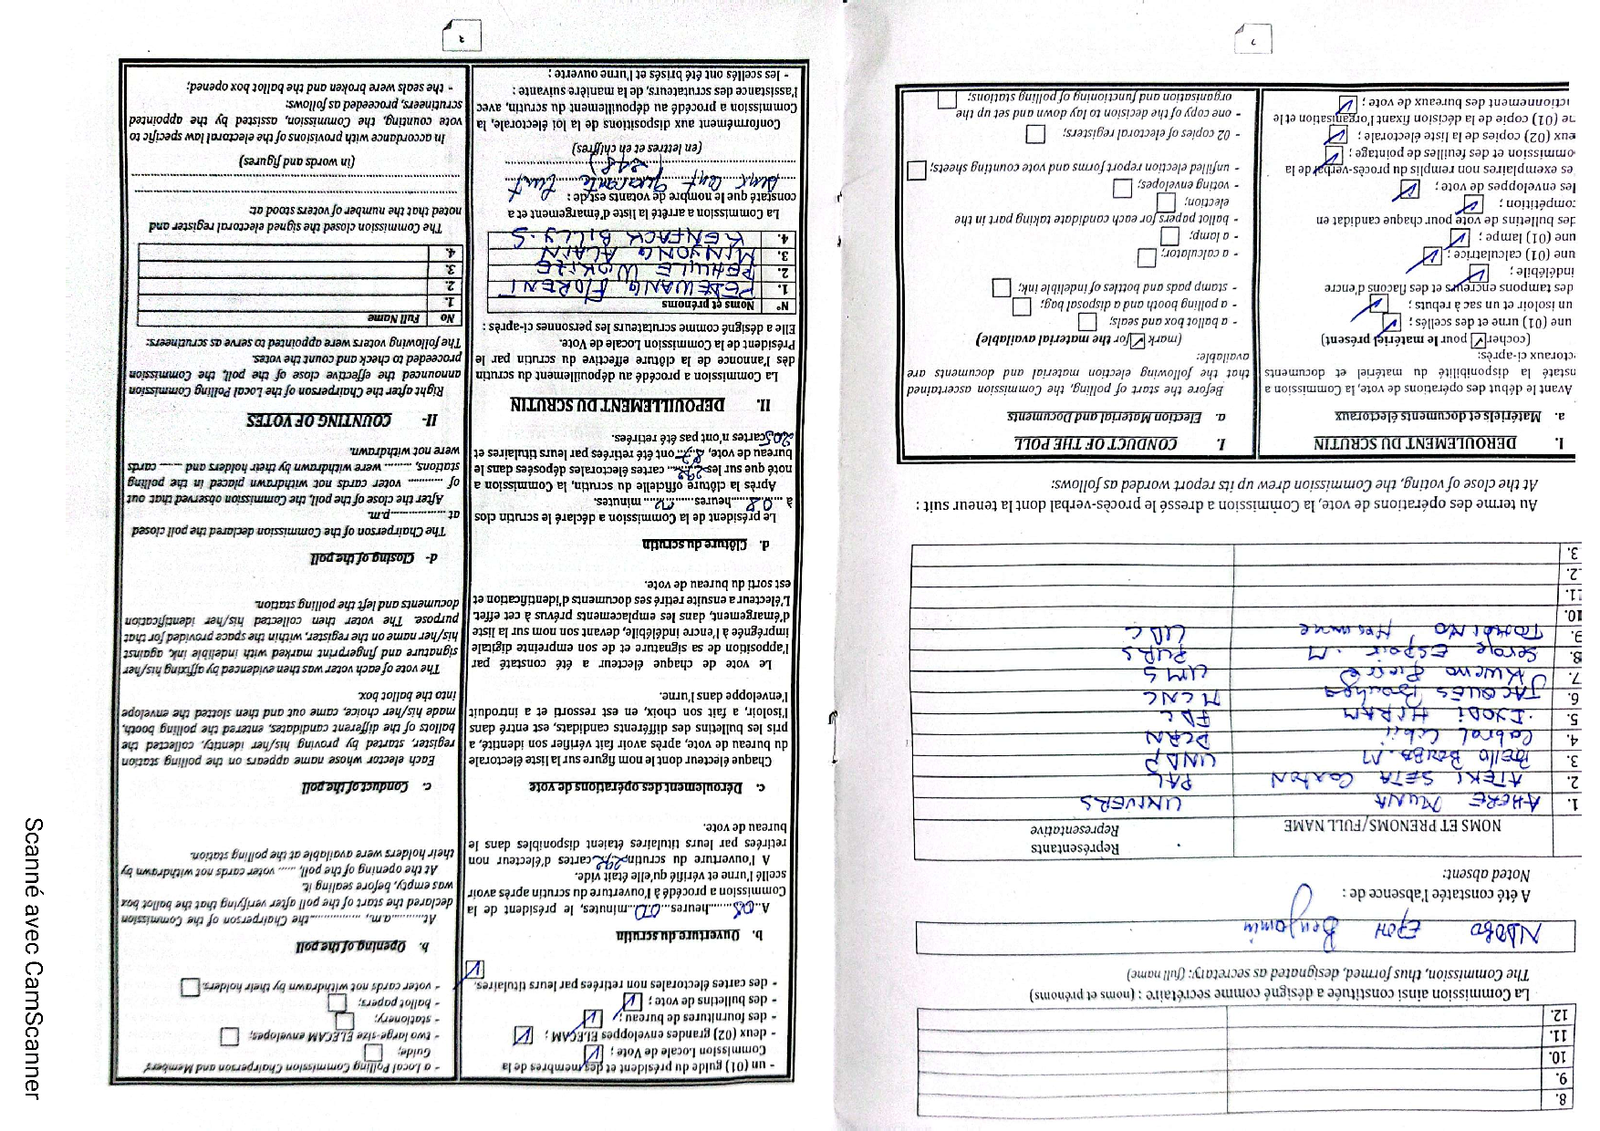 8.
9.
10.
11.
12.
La Commission ainsi constituée a désigné comme secrétaire : (noms et prénoms)
The Commission, thus formed, designated as secretary: (full name)
NDOBO EPOH Benjamin
A été constatée l'absence de :
Noted absent:
NOMS ET PRENOMS/FULL NAME
Représentants
Representative
1. AHERE MUNA UNIVERS
2. ATEKI SETA CAXTON PAL
3. Bello Bouba .M UNDP
4. Cabral Libii PCRN
5. HIRAM FDC
6. JACQUES MCNC
7. Kwemo Pierre UMS
8. Serge Espoir .M PURS
9. TOMAINO UDC
10.
11.
2.
3.
Au terme des opérations de vote, la Commission a dressé le procès-verbal dont la teneur suit :
At the close of voting, the Commission drew up its report worded as follows:
I. DEROULEMENT DU SCRUTIN
a. Matériels et documents électoraux
Avant le début des opérations de vote, la Commission a
nstaté la disponibilité du matériel et documents
ctoraux ci-après:
(cocher pour le matériel présent)
une (01) urne et des scellés ;
un isoloir et un sac à rebuts ;
des tampons encreurs et des flacons d'encre
indélébile ;
une (01) calculatrice ;
une (01) lampe ;
des bulletins de vote pour chaque candidat en
ompétition ;
les enveloppes de vote ;
es exemplaires non remplis du procès-verbal de la
ommission et des feuilles de pointage ;
eux (02) copies de la liste électorale ;
ne (01) copie de la décision fixant l'organisation et le
ctionnement des bureaux de vote ;
I. CONDUCT OF THE POLL
a. Election Material and Documents
Before the start of polling, the Commission ascertained
that the following election material and documents are
available:
(mark for the material available)
- a ballot box and seals;
- a polling booth and a disposal bag;
- stamp pads and bottles of indelible ink;
- a calculator;
- a lamp;
- ballot papers for each candidate taking part in the
election;
- voting envelopes;
- unfilled election report forms and vote counting sheets;
- 02 copies of electoral registers;
- one copy of the decision to lay down and set up the
organisation and functioning of polling stations;
- un (01) guide du président et des membres de la
Commission Locale de Vote ;
- deux (02) grandes enveloppes ELECAM ;
- des fournitures de bureau ;
- des bulletins de vote ;
- des cartes électorales non retirées par leurs titulaires.
b. Ouverture du scrutin
A..08...heures...00...minutes, le président de la
Commission a procédé à l'ouverture du scrutin après avoir
scellé l'urne et vérifié qu'elle était vide.
A l'ouverture du scrutin, 292 cartes d'électeur non
retirées par leurs titulaires étaient disponibles dans le
bureau de vote.
c. Déroulement des opérations de vote
Chaque électeur dont le nom figure sur la liste électorale
du bureau de vote, après avoir fait vérifier son identité, a
pris les bulletins des différents candidats, est entré dans
l'isoloir, a fait son choix, en est ressorti et a introduit
l'enveloppe dans l'urne.
Le vote de chaque électeur a été constaté par
l'apposition de sa signature et de son empreinte digitale
imprégnée à l'encre indélébile, devant son nom sur la liste
d'émargement, dans les emplacements prévus à cet effet.
L'électeur a ensuite retiré ses documents d'identification et
est sorti du bureau de vote.
d. Clôture du scrutin
Le président de la Commission a déclaré le scrutin clos
à ......heures......minutes.
Après la clôture officielle du scrutin, la Commission a
noté que sur les 292 cartes électorales déposées dans le
bureau de vote, 87 ont été retirées par leurs titulaires et
205 cartes n'ont pas été retirées.
II. DEPOUILLEMENT DU SCRUTIN
La Commission a procédé au dépouillement du scrutin
dès l'annonce de la clôture effective du scrutin par le
Président de la Commission Locale de Vote.
Elle a désigné comme scrutateurs les personnes ci-après :
N° Noms et prénoms
1. FEDEWANG FLORENT
2.
3. MINYONG ALAIN
4. KENFACK BILLY.S
La Commission a arrêté la liste d'émargement et a
constaté que le nombre de votants est de :
deux cent quarante huit
(248)
(en lettres et en chiffres)
Conformément aux dispositions de la loi électorale, la
Commission a procédé au dépouillement du scrutin, avec
l'assistance des scrutateurs, de la manière suivante :
- les scellés ont été brisés et l'urne ouverte ;
- a Local Polling Commission Chairperson and Members'
Guide;
- two large-size ELECAM envelopes;
- stationery;
- ballot papers;
- voter cards not withdrawn by their holders.
b. Opening of the poll
At.........a.m., .............the Chairperson of the Commission
declared the start of the poll after verifying that the ballot box
was empty, before sealing it.
At the opening of the poll, ...... voter cards not withdrawn by
their holders were available at the polling station.
c. Conduct of the poll
Each elector whose name appears on the polling station
register, started by proving his/her identity, collected the
ballots of the different candidates, entered the polling booth,
made his/her choice, came out and then slotted the envelope
into the ballot box.
The vote of each voter was then evidenced by affixing his/her
signature and fingerprint marked with indelible ink, against
his/her name on the register, within the space provided for that
purpose. The voter then collected his/her identification
documents and left the polling station.
d- Closing of the poll
The Chairperson of the Commission declared the poll closed
at ..................p.m.
After the close of the poll, the Commission observed that out
of ......... voter cards not withdrawn placed in the polling
stations, ........ were withdrawn by their holders and ...... cards
were not withdrawn.
II- COUNTING OF VOTES
Right after the Chairperson of the Local Polling Commission
announced the effective close of the poll, the Commission
proceeded to check and count the votes.
The following voters were appointed to serve as scrutineers:
No Full Name
1.
2.
3.
4.
The Commission closed the signed electoral register and
noted that the number of voters stood at:
(in words and figures)
In accordance with provisions of the electoral law specific to
vote counting, the Commission, assisted by the appointed
scrutineers, proceeded as follows:
- the seals were broken and the ballot box opened;
Scanné avec CamScanner